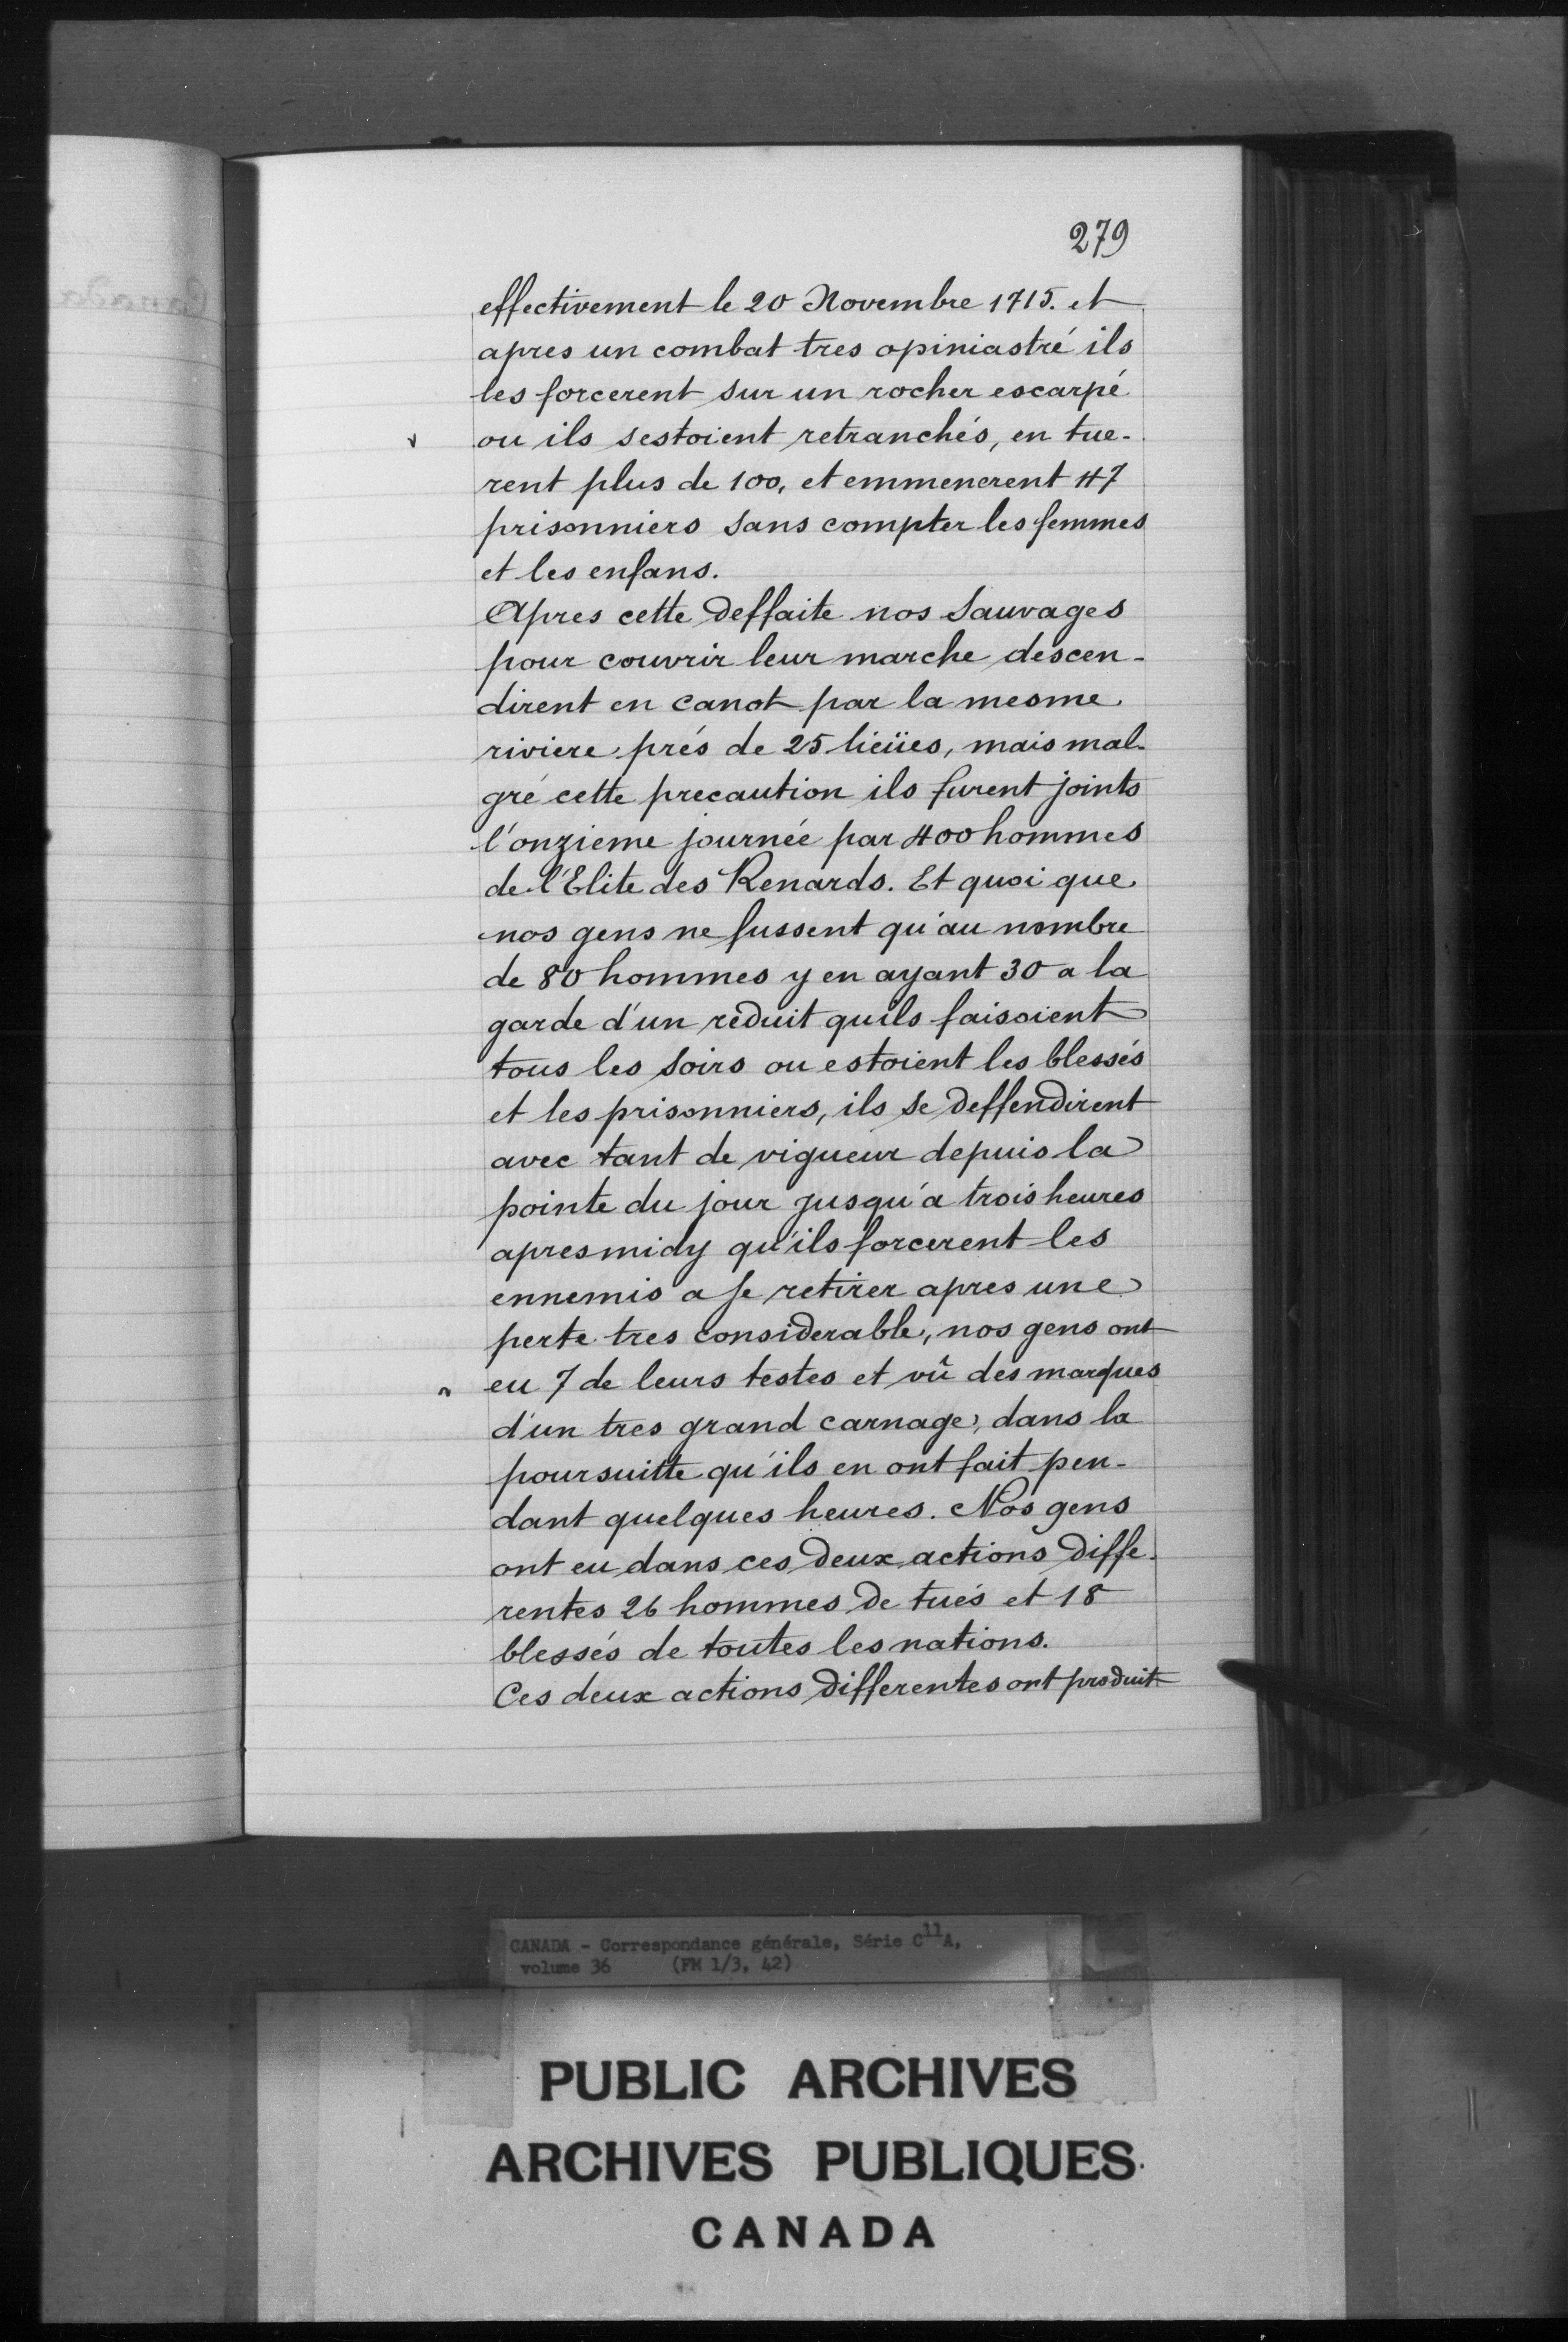 279
effectivement le 20 Novembre 1715. et
apres un combat tres opiniastré ils
les forcerent sur un rocher escarpé
ou ils sestoient retranchés, en tue-
rent plus de 100, et emmenerent 47
prisonniers sans compter les femmes
et les enfans.
Apres cette deffaite nos Sauvages
pour couvrir leur marche descen-
dirent en canot par la mesme
riviere prés de 25 lieües, mais mal-
gré cette precaution ils furent joints
l'onzieme journée par 400 hommes
de l'Elite des Renards. Et quoi que
nos gens ne fussent qu'au nombre
de 80 hommes y en ayant 30 a la
garde d'un réduit quils faisoient
tous les soirs ou estoient les blessés
et les prisonniers, ils se deffendirent
avec tant de vigueur depuis la
pointe du jour jusqu'a trois heures
apresmidy qu'ils forcerent les
ennemis a se retirer apres une
perte tres considerable, nos gens ont
eu 7 de leurs testes et vû des marques
d'un tres grand carnage, dans la
poursuitte qu'ils en ont fait pen-
dant quelques heures. Nos gens
ont eu dans ces deux actions diffe-
rentes 26 hommes de tués et 18
blessés de toutes les nations.
Ces deux actions differentes ont produit
CANADA - Correspondance générale, Série C11A,
volume 36 (FM 1/3, 42)
PUBLIC ARCHIVES
ARCHIVES PUBLIQUES
CANADA